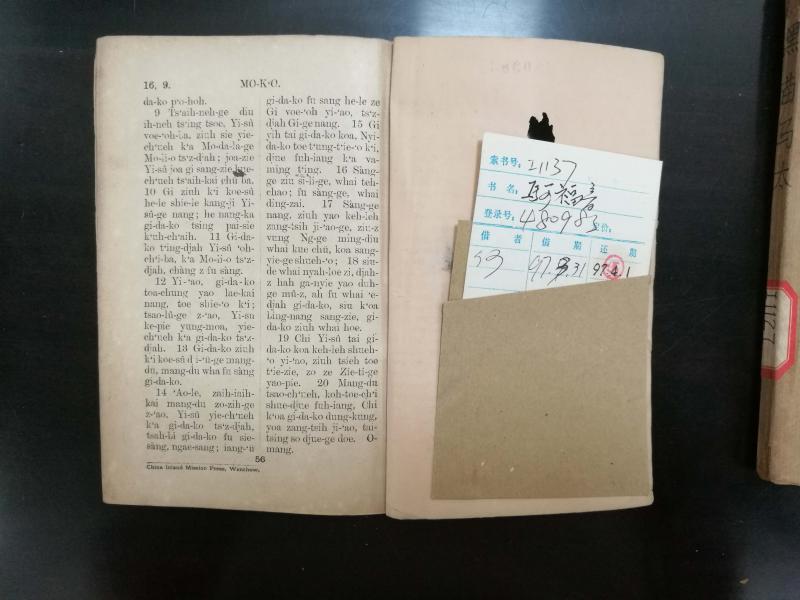 16, 9.
MO-K‘O.
da-ko p‘o-hoh.
9 Ts‘aih-neh-ge diu
ih-neh ts‘ing tsoe, Yi-sû
voe-‘oh-ba, ziuh sie yie-
ch‘ueh k‘a Mo-da-la-ge
Mo-li-o ts‘z-d‘ah; joa-zie
Yi-sû joa gi sang-zie
ch‘ueh ts‘aih-kai chû ba.
10 Gi ziuh k‘i koe-sû
he-le shie-le kang-ji Yi-
sû-ge nang; he nang-ka
gi-da-ko tsing pai-sie
k‘uh-ch‘aih. 11 Gi-da-
ko t‘ing-djah Yi-sû ‘oh-
ch‘i-ba, k‘a Mo-li-o ts‘z-
djah, chàng z fu sàng.
12 Yi-‘ao, gi-da-ko
toa-chung yao lae-kai
nang, toe shie-‘o k‘i;
tsao-lû-ge z-‘ao, Yi-su
ke-pie yung-moa, yie-
ch‘ueh k‘a gi-da-ko ts‘z-
djah. 13 Gi-da-ko ziuh
k‘i koe-sû di-‘û-ge mang-
du, mang-du wha fu sàng
gi-da-ko.
14 ‘Ao-le, zaih-iaih-
kai mang-du zo-zih-ge
z-‘ao, Yi-sû yie-ch‘ueh
k‘a gi-da-ko ts‘z-djah,
tsah-bi gi-da-ko fu sie-
sàng, ngae-sang; iang-‘ü
gi-da-ko fu sang he-le ze
Gi voe-‘oh yi-‘ao, ts‘z-
djah Gi-ge nang. 15 Gi
yih tai gi-da-ko koa, Nyi-
da-ko toe t‘ung-t‘ie-‘o k‘i,
djue fuh-iang k‘a va-
ming t‘ing. 16 Sàng-
ge ziu si-li-ge, whai teh-
chao; fu sàng-ge, whai
ding-zai. 17 Sàng-ge
nang, ziuh yao keh-leh
zang-tsih ji-‘ao-ge, ziu-z
vung Ng-ge ming-diu
whai kue chü, koa sang-
yie-ge shueh-‘o; 18 siu-
de whai nyah-loe zi, djah-
z hah ga-nyie yao duh-
ge mû-z, ah fu whai ‘e-
djah gi-da-ko, siu k‘oa
bing-nang sang-zie, gi-
da-ko ziuh whai hoe.
19 Chi Yi-sû tai gi-
da-ko koa keh-leh shueh-
‘o yi-‘ao, ziuh tsieh toe
t‘ie-zie, zo ze Zie-ti-ge
yao-pie. 20 Mang-du
tsao-ch‘ueh, koh-toe-ch‘i
shue-djue fuh-iang, Chi
k‘oa gi-da-ko dung-kung,
yoa zang-tsih ji-‘ao, tai-
tsing so djue-ge doe. O-
mang.
56
China Inland Mission Press, Wenchow.
索书号: I1137
书名: 马可福音
登录号: 480983 定价:
借者 借期 还期
97.3.31 97.4.1